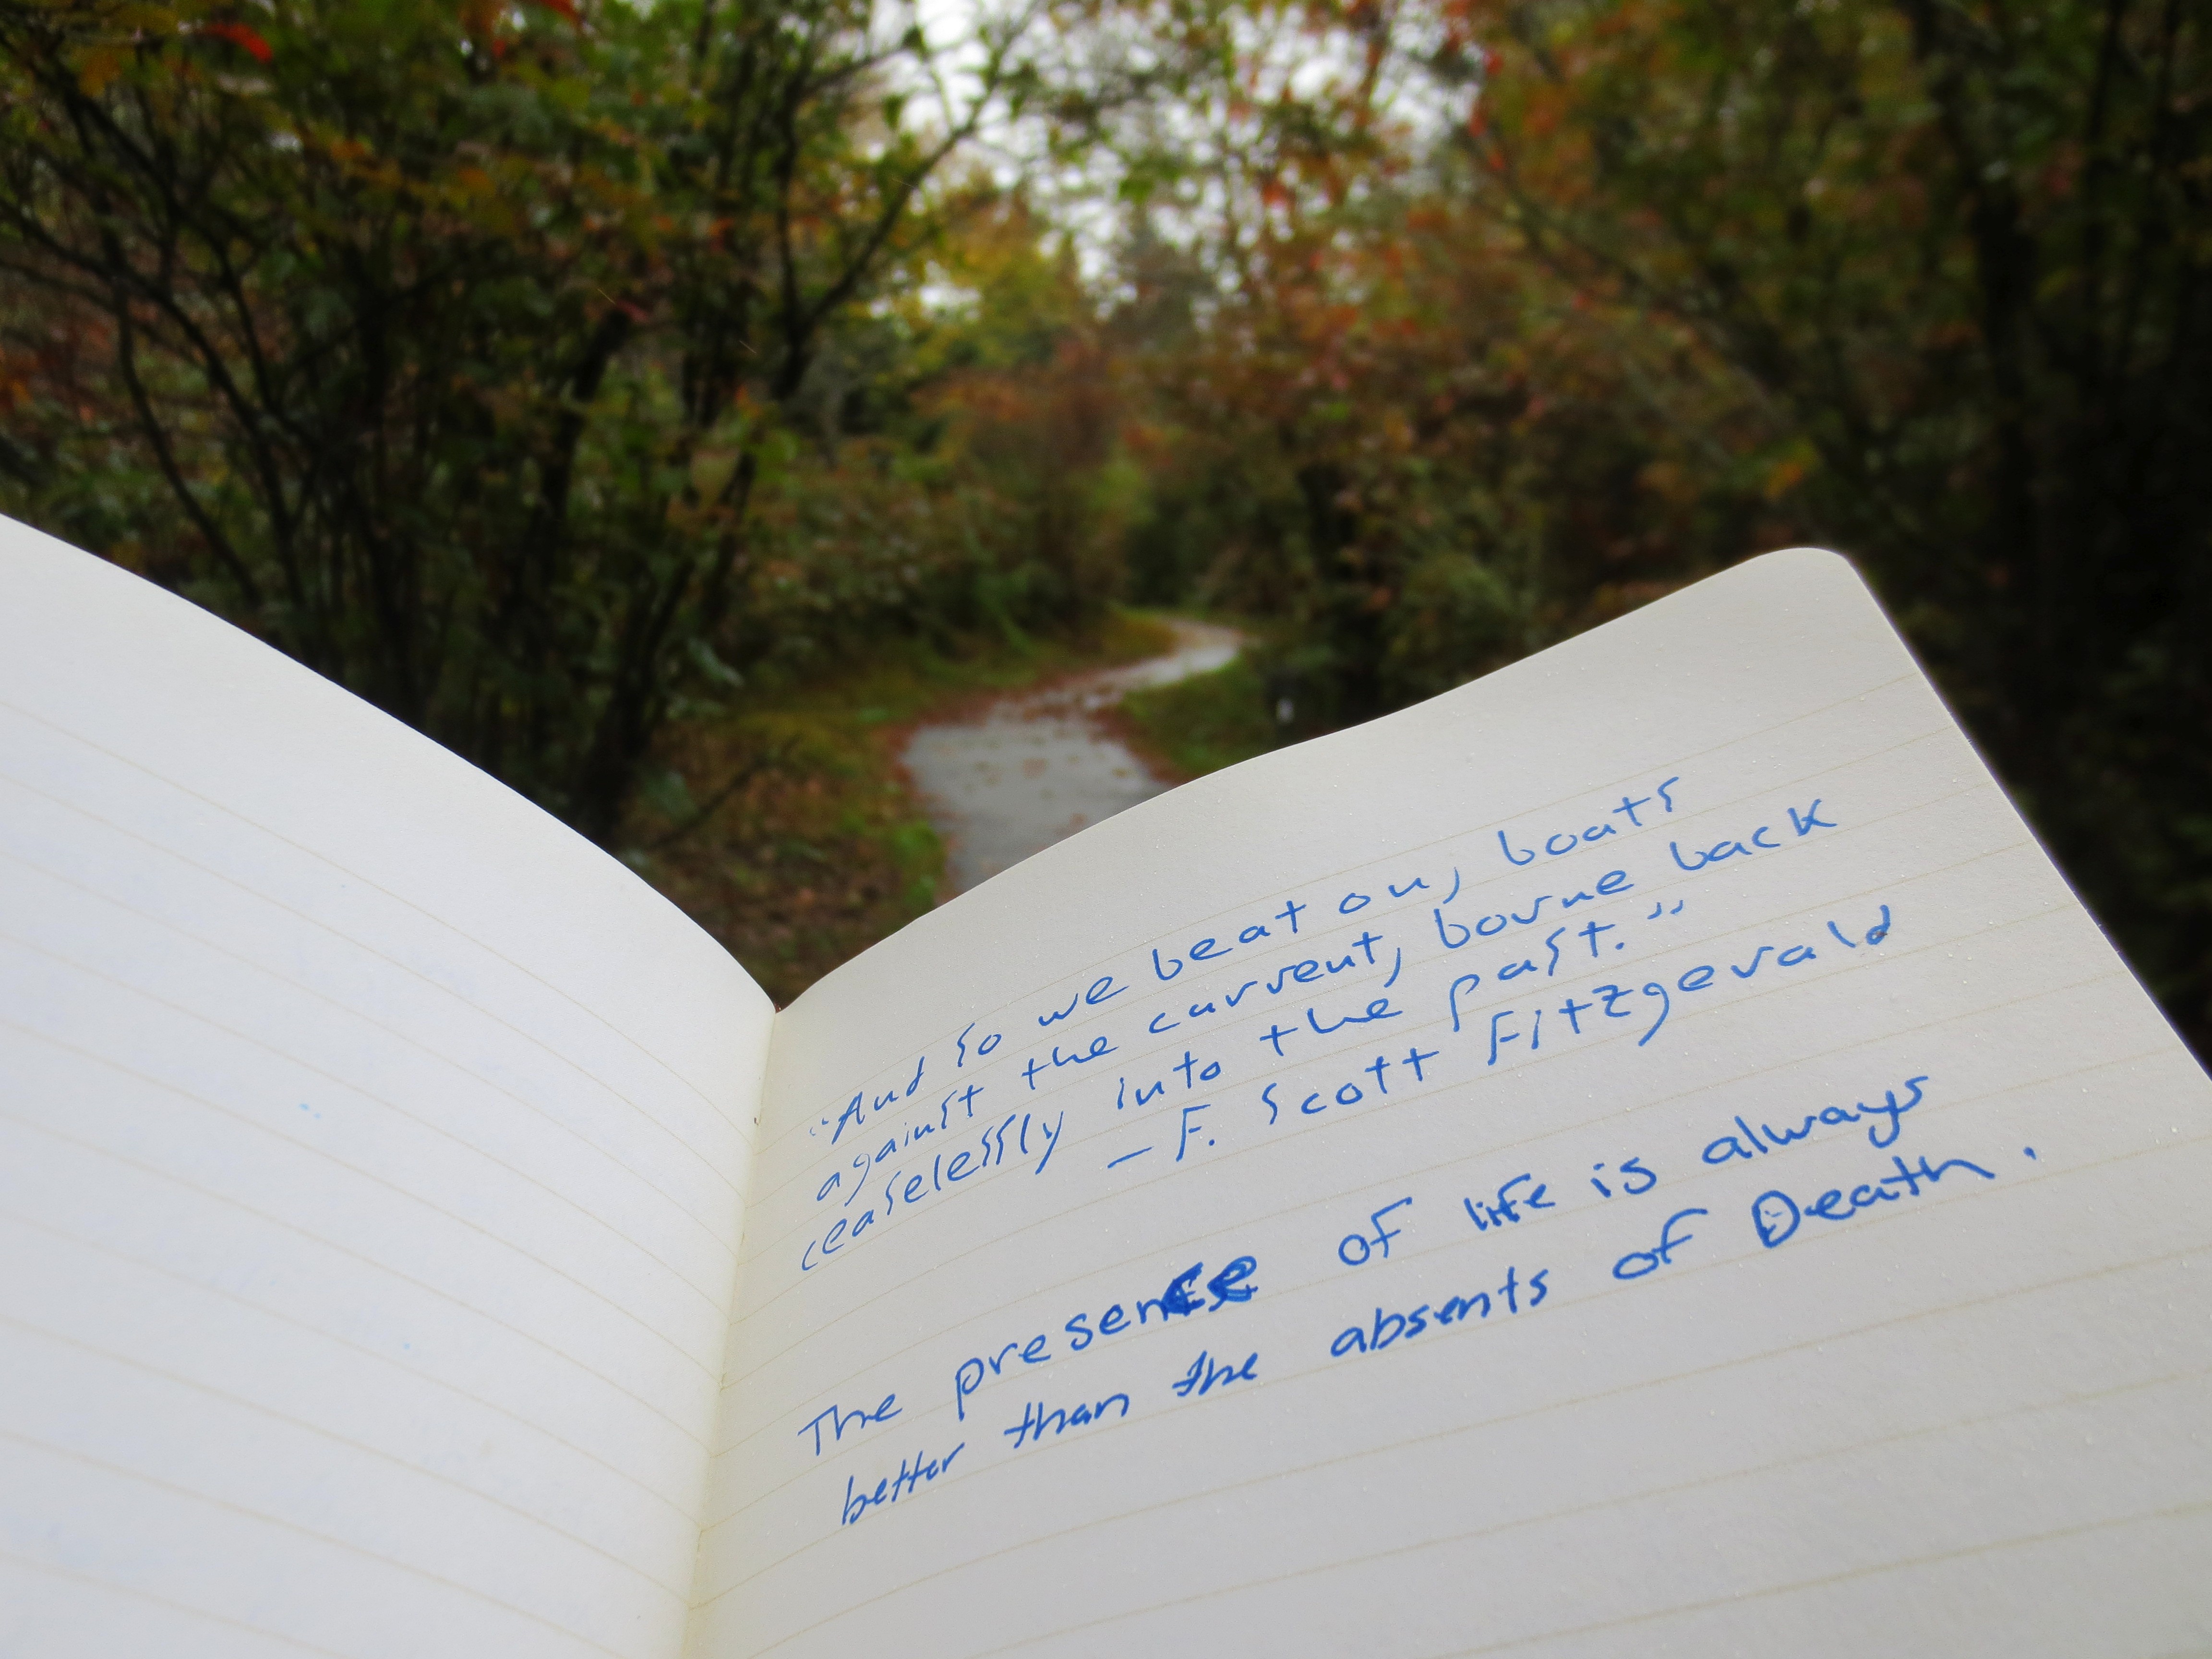 "And so we beat on, boats
against the current, borne back
ceaselessly into the past."
- F. Scott Fitzgerald
The presence of life is always
better than the absents of Death.